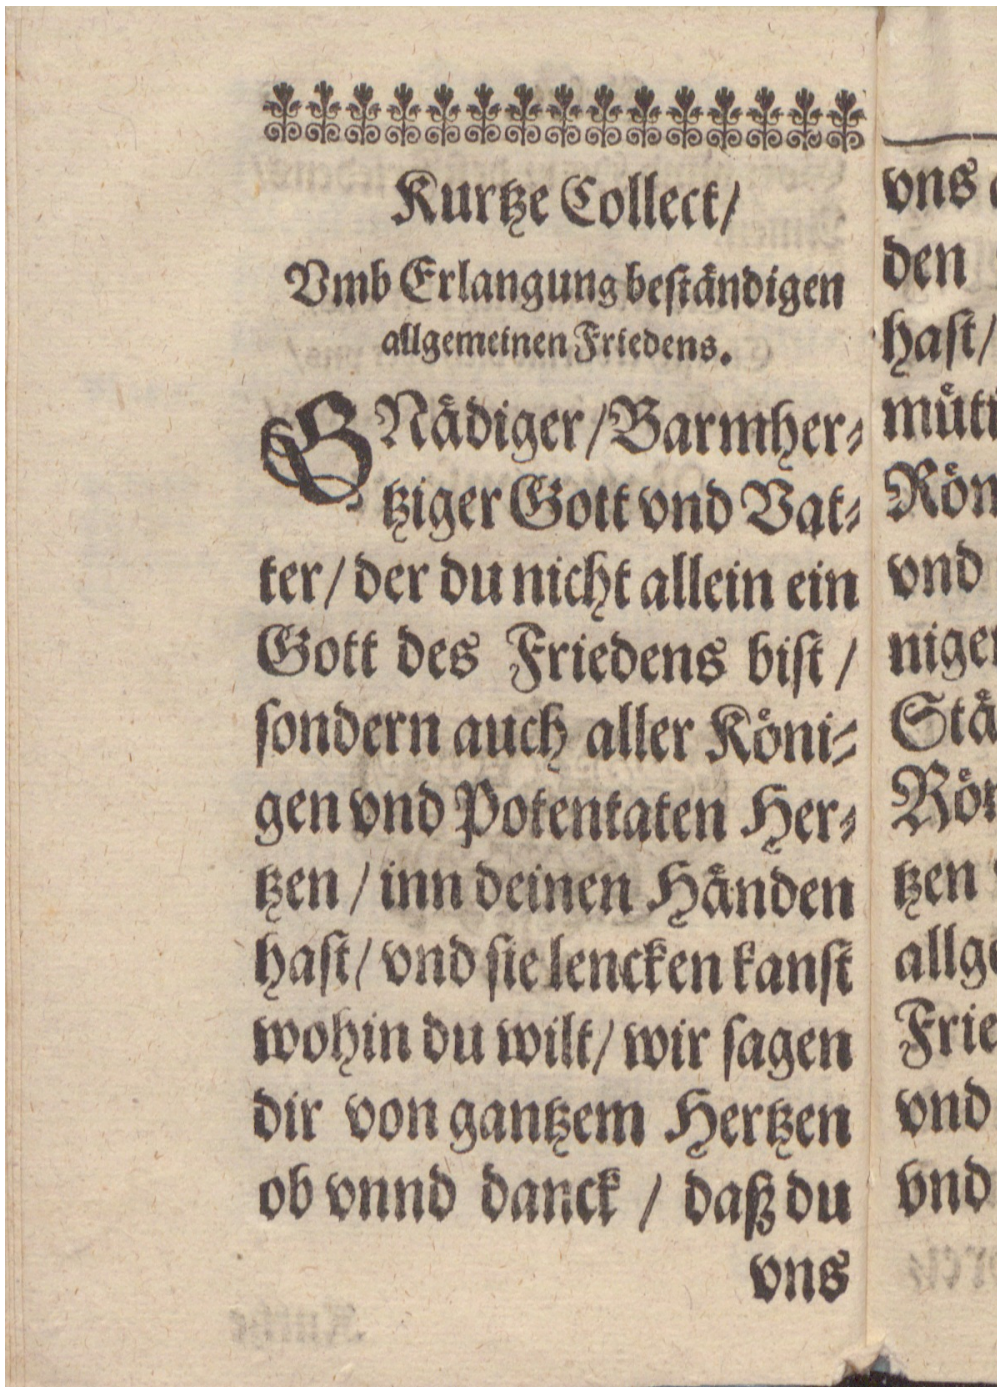 Kurtze Collect/
Vmb Erlangung beständigen
allgemeinen Friedens.
GNädiger/Barmher⸗
tziger Gott vnd Vat⸗
ter/ der du nicht allein ein
Gott des Friedens bist /
sondern auch aller Köni⸗
gen vnd Potentaten Her⸗
tzen / inn deinen Händen
hast/ vnd sie lencken kanst
wohin du wilt/ wir sagen
dir von gantzem Hertzen
ob vnnd danck / daß du
vns
vns
den
hast/
müti
Röm
vnd
niger
Stä
Röm
tzen
allge
Frie
vnd
vnd